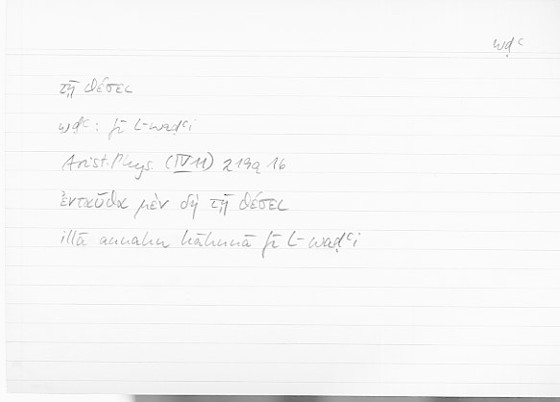 wḍʿ
τῇ θέσει
wḍʿ: fī l-waḍʿi
Arist. Phys. (IV 11) 219a16
ἐνταῦθα μὲν δὴ τῇ θέσει
illā annahu hāhunā fī l-waḍʿi